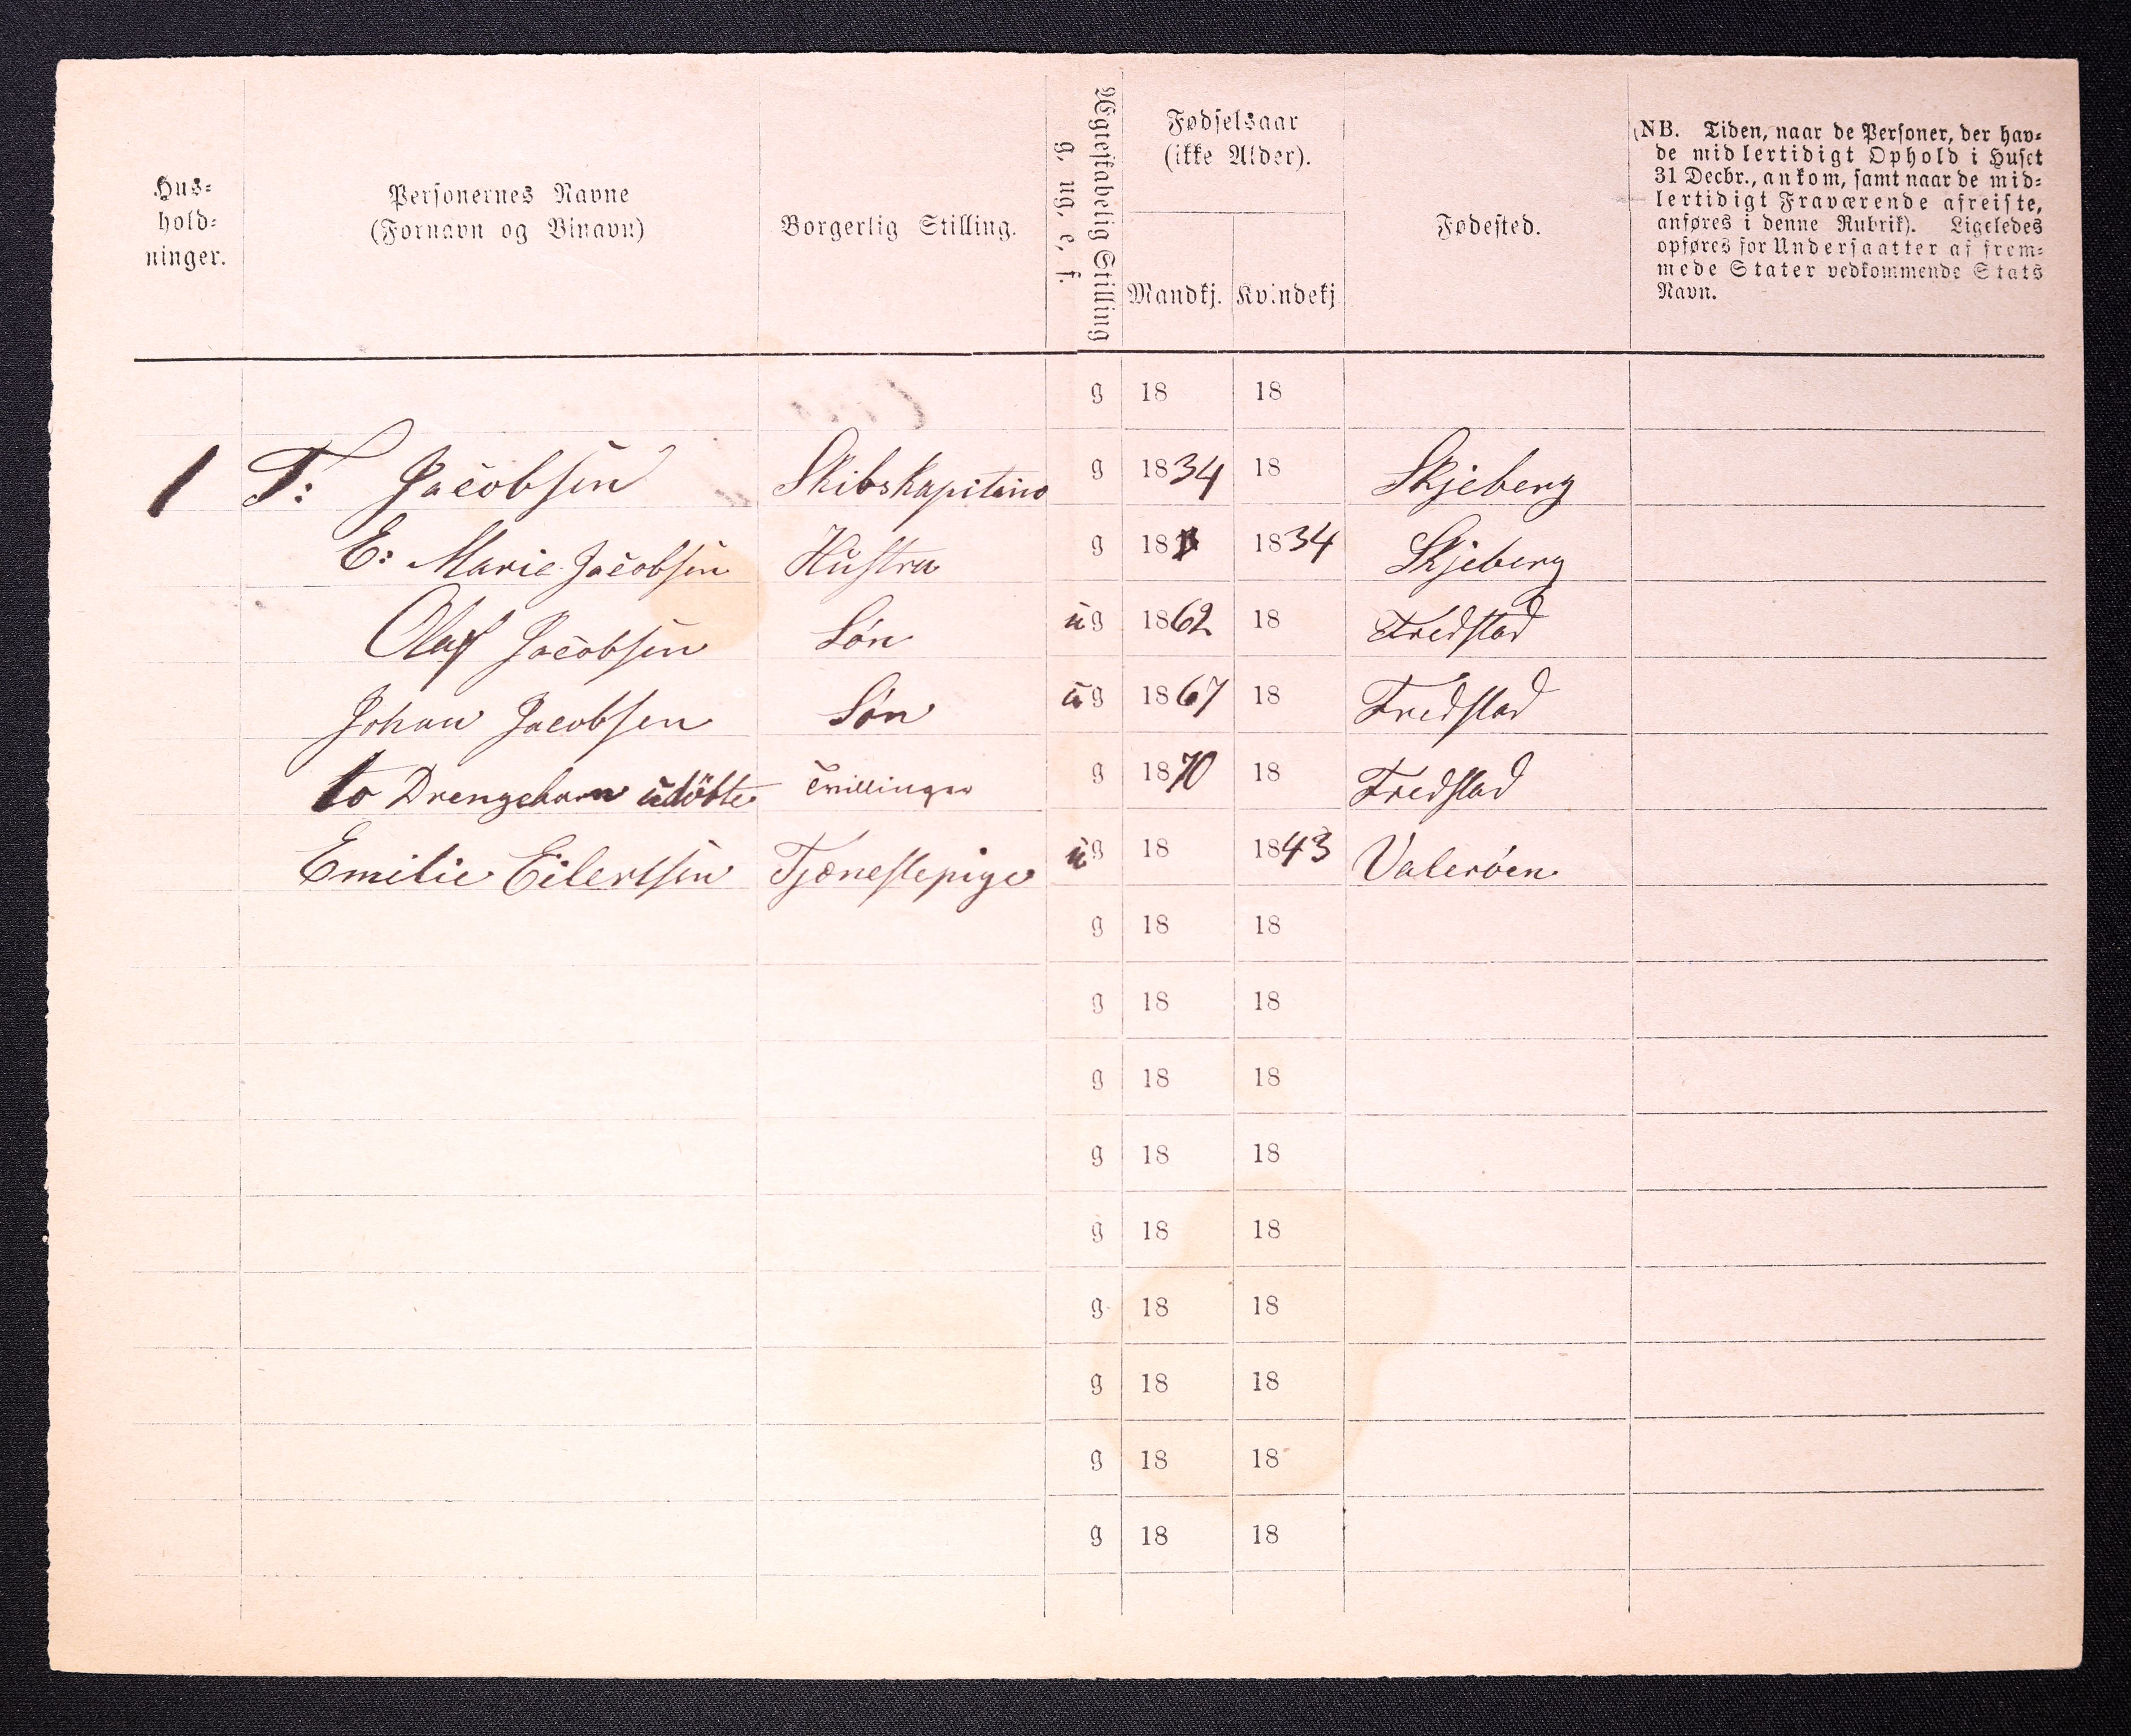 Hus-
hold-
ninger.
Personernes Navne
(Fornavn og Binavn)
Borgerlig Stilling.
Ægteskabelig Stilling
g. ug. e. f.
Fødselsaar
(ikke Alder).
Mandkj. Kvindekj
Fødested.
(NB. Tiden, naar de Personer, der hav-
de midlertidigt Ophold i Huset
31 Decbr., ankom, samt naar de mid-
lertidigt Fraværende afreiste,
anføres i denne Rubrik). Ligeledes
opføres for Undersaatter af frem-
mede Stater vedkommende Stats
Navn.
g 18 18
1 T: Jacobsen Skibskapitain g 1834 18 Skjeberg
E: Marie Jacobsen Hustru g 18 1834 Skjeberg
Olaf Jacobsen Søn ug 1862 18 Fredstad
Johan Jacobsen Søn ug 1867 18 Fredstad
to Drengebørn udöbte Tvillinger g 1870 18 Fredstad
Emilie Eilertsen Tjænestepige ug 18 1843 Valerøen
g 18 18
g 18 18
g 18 18
g 18 18
g 18 18
g 18 18
g 18 18
g 18 18
g 18 18